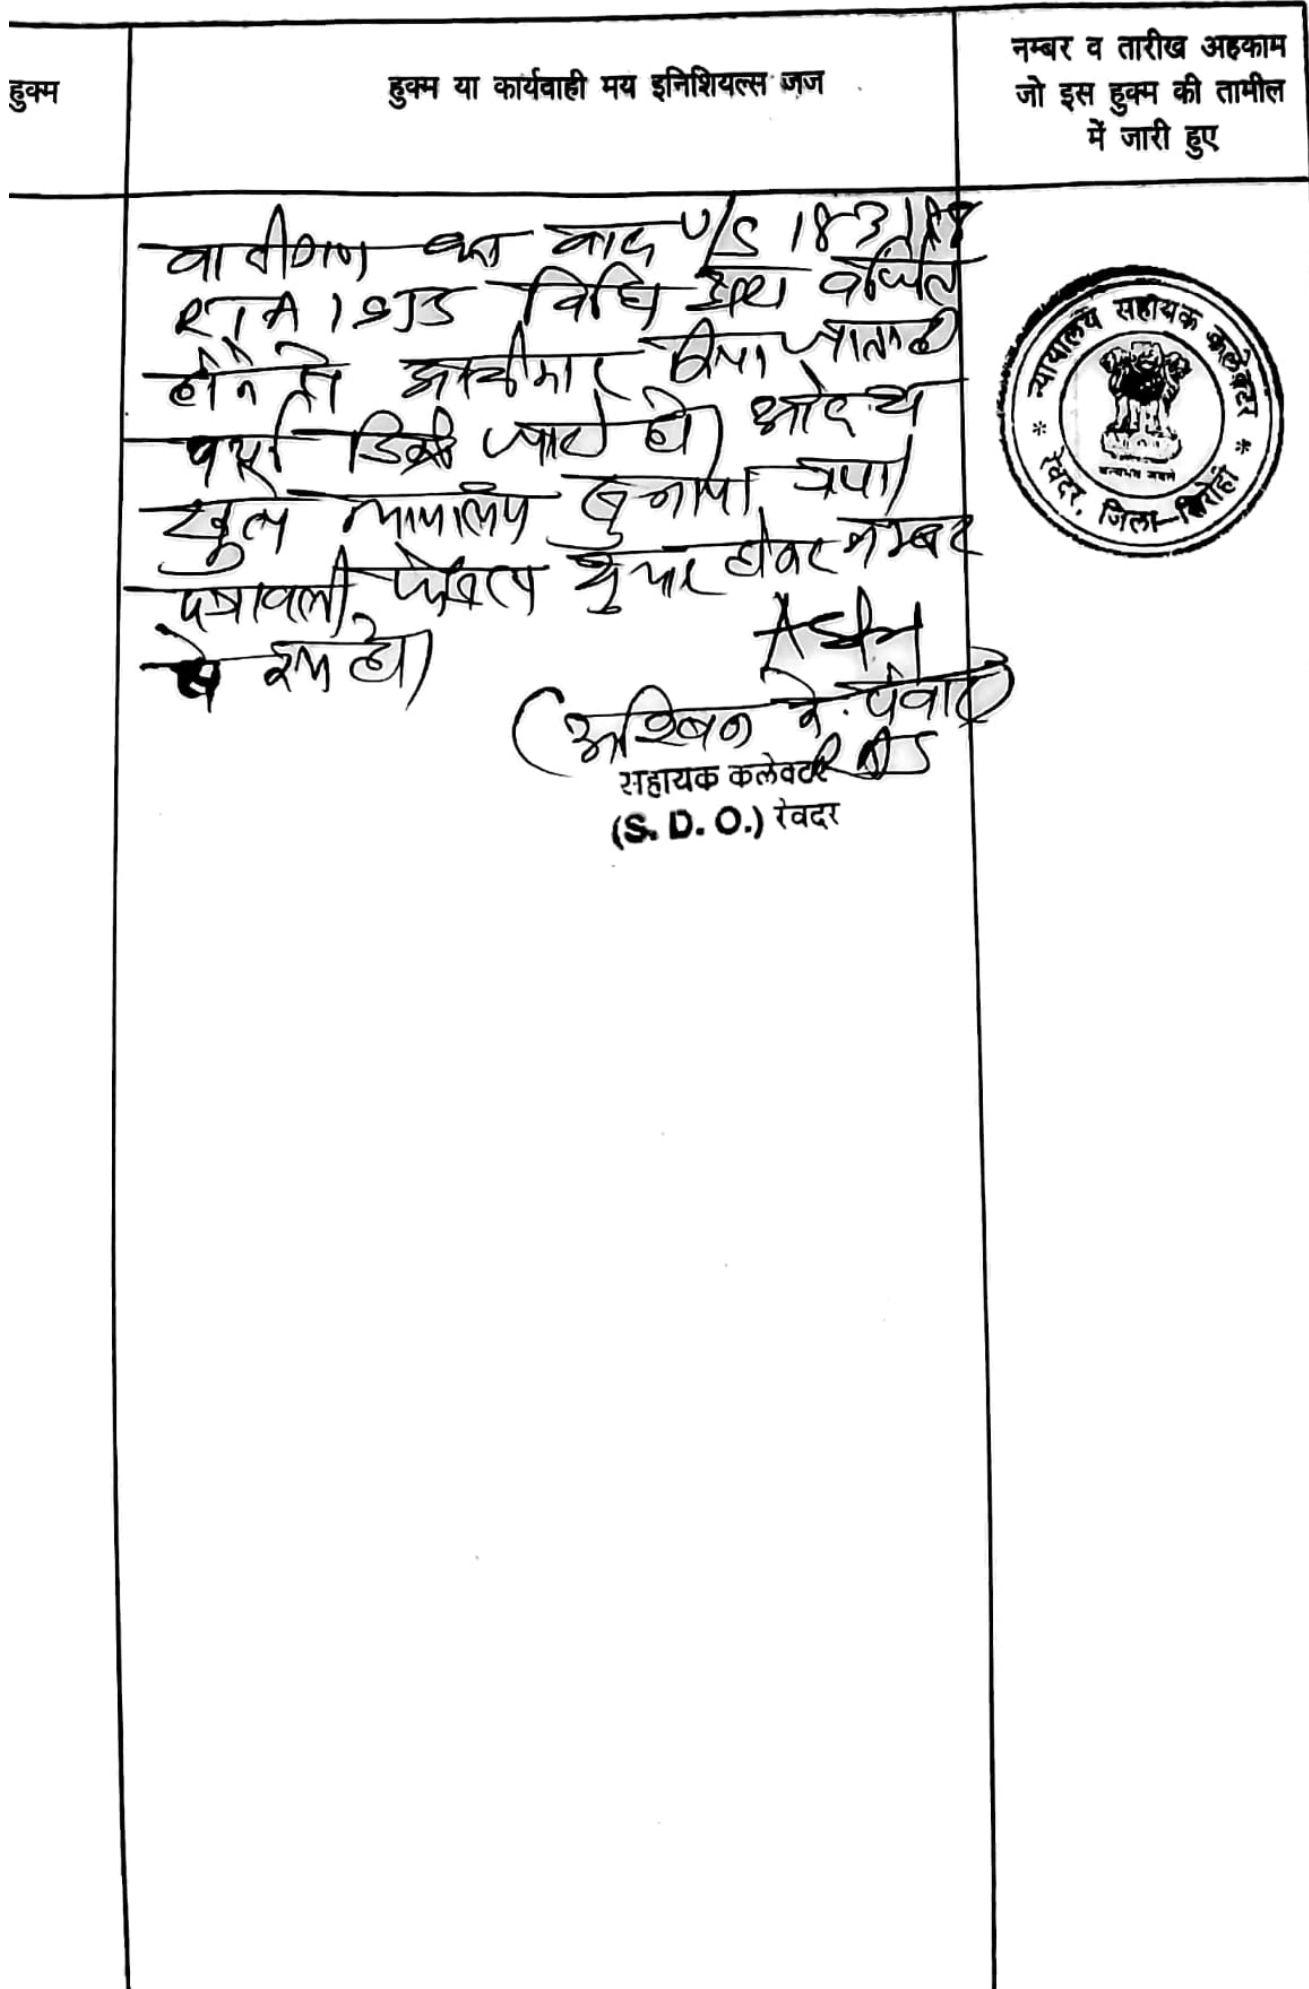 हुक्म
हुक्म या कार्यवाही मय इनिशियल्स जज
नम्बर व तारीख अहकाम
जो इस हुक्म की तामील
में जारी हुए
वादीगण का वाद U/S 183
RTA 1955 विधि द्वारा वर्जित
होने से अस्वीकार किया जाता है
पर्चा डिक्री जारी हो। आदेश
खुले न्यायालय सुनाया गया।
पत्रावली फैसल शुमार होकर नम्बर
से कम हो।
(अश्विन के. पंवार)
RAS
सहायक कलेक्टर
(S. D. O.) रेवदर
न्यायालय सहायक कलेक्टर
सत्यमेव जयते
रेवदर, जिला-सिरोही